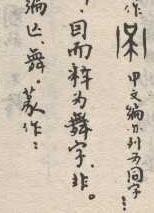 作：
甲文編亦列為同字：
，因而释为舞字，非。
编匹、舞。篆作：